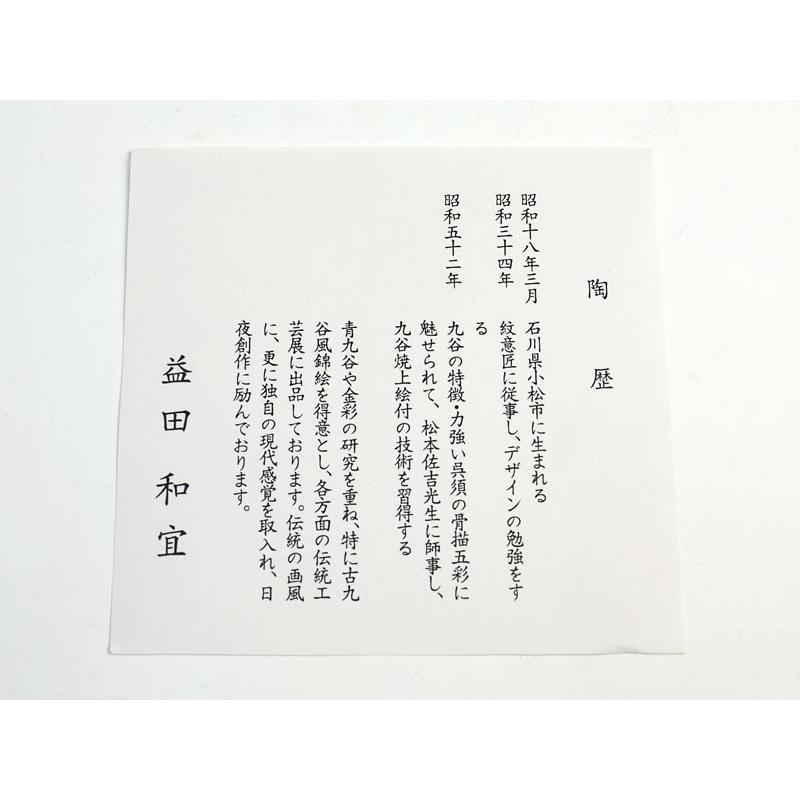 陶歴
昭和十八年三月 石川県小松市に生まれる
昭和三十四年 紋意匠に従事し、デザインの勉強をす
る
昭和五十二年 九谷の特徴・力強い呉須の骨描五彩に
魅せられて、松本佐吉光生に師事し、
九谷焼上絵付の技術を習得する
青九谷や金彩の研究を重ね、特に古九
谷風錦絵を得意とし、各方面の伝統工
芸展に出品しております。伝統の画風
に、更に独自の現代感覚を取入れ、日
夜創作に励んでおります。
益田和宜